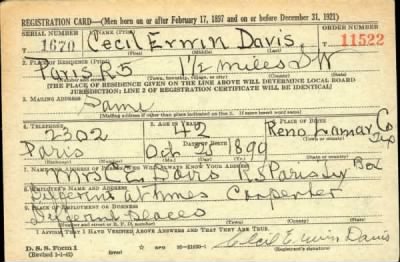 REGISTRATION CARD—(Men born on or after February 17, 1897 and on or before December 31, 1921)
SERIAL NUMBER 1. NAME (Print) ORDER NUMBER
1670 Cecil Erwin Davis 11522
(First) (Middle) (Last)
2. PLACE OF RESIDENCE (Print)
Paris R5 1 1/2 miles SW
(Number and street) (Town, township, village, or city) (County) (State)
[THE PLACE OF RESIDENCE GIVEN ON THE LINE ABOVE WILL DETERMINE LOCAL BOARD
JURISDICTION; LINE 2 OF REGISTRATION CERTIFICATE WILL BE IDENTICAL]
3. MAILING ADDRESS
Same
[Mailing address if other than place indicated on line 2. If same insert word same]
4. TELEPHONE 5. AGE IN YEARS 6. PLACE OF BIRTH
2202 42 Reno Lamar Co
DATE OF BIRTH Tex
Paris Oct 21 1899
7. NAME AND ADDRESS OF PERSON WHO WILL ALWAYS KNOW YOUR ADDRESS
Mrs C E Davis R5 Paris Box
8. EMPLOYER'S NAME AND ADDRESS
Different at times Carpenter
9. PLACE OF EMPLOYMENT OR BUSINESS
Different places
(Number and street or R. F. D. number) (Town) (County) (State)
I AFFIRM THAT I HAVE VERIFIED ABOVE ANSWERS AND THAT THEY ARE TRUE.
D. S. S. Form 1 Cecil Erwin Davis
(Revised 1-1-42) (Registrant's signature)